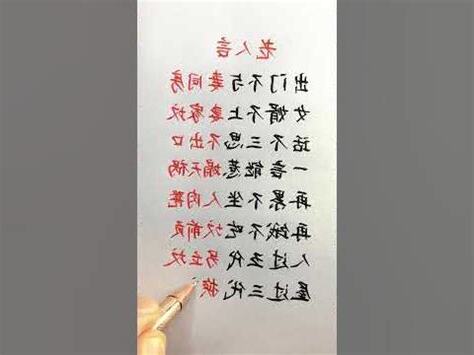 老人言
出门不与妻同房
女婿不上妻家坟
话不三思不出口
一言能惹塌天祸
再累不坐人肉凳
再饿不吃坟前贡
人过五代另立坟
屋过三代